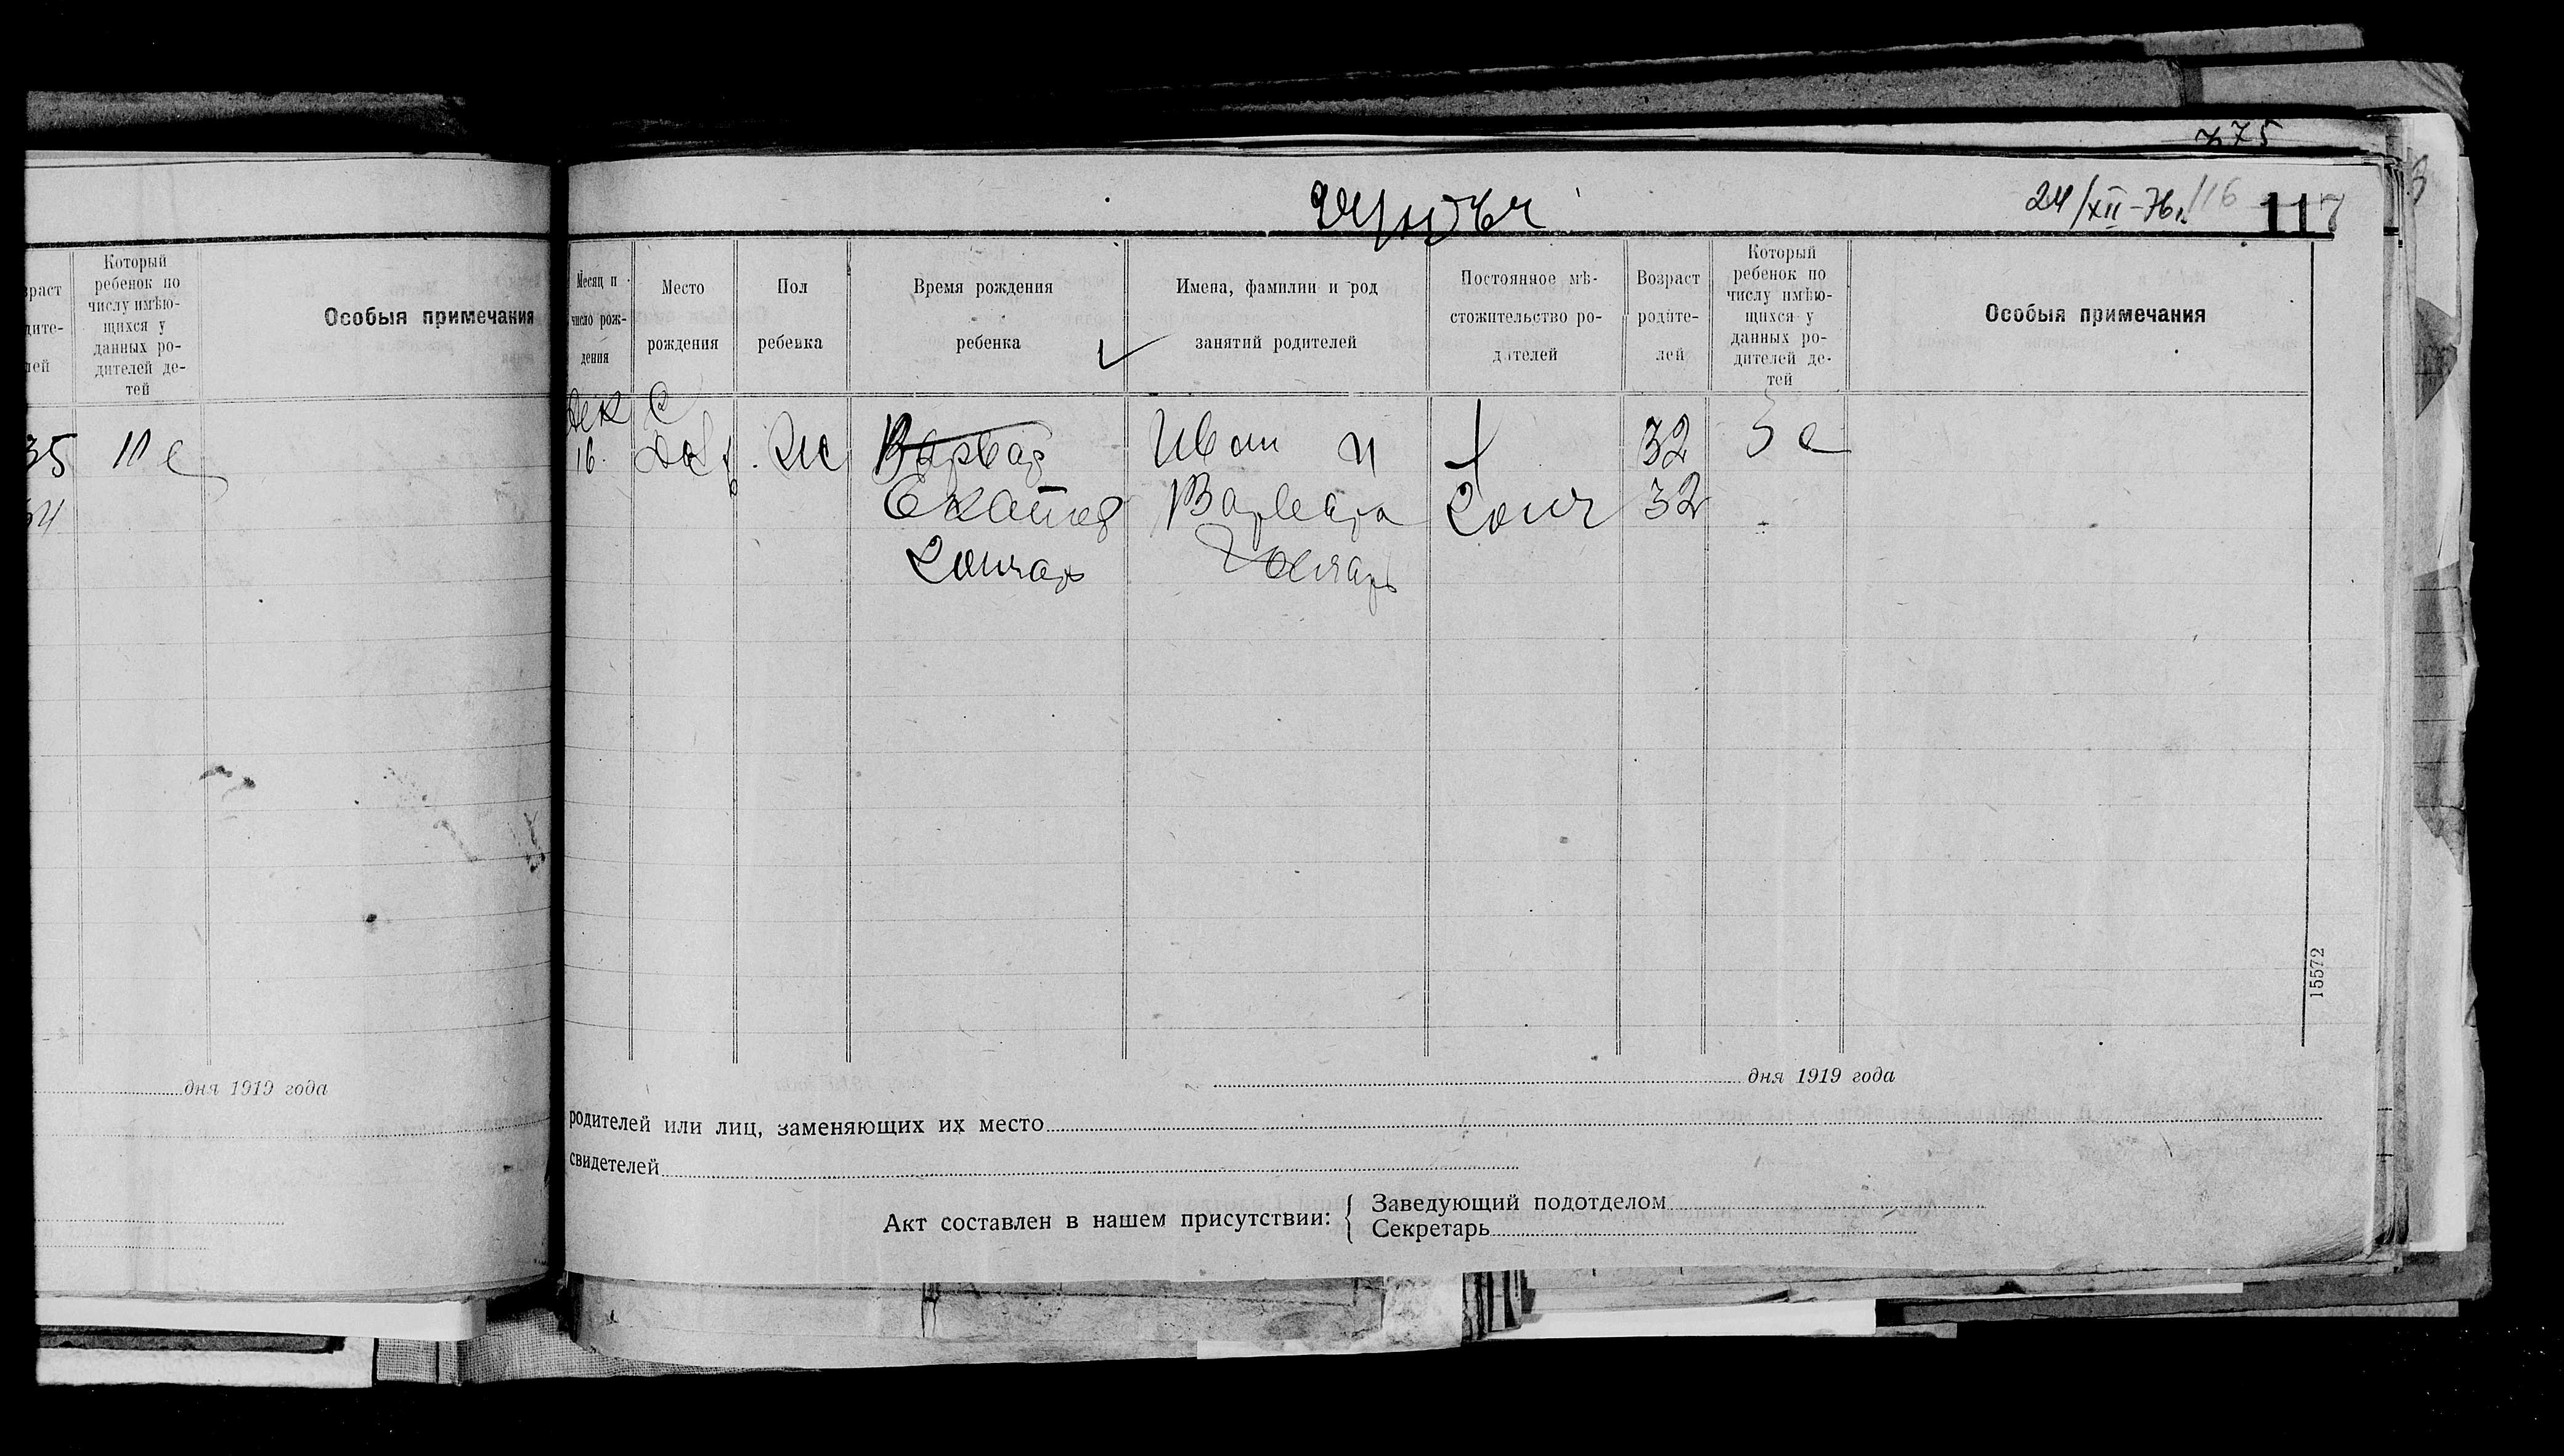 675
24/XII-76г. 116 117
раст
дите-
лей
Который
ребенок по
числу имѣю-
щихся у
данных ро-
дителей де-
тей
Особыя примечания
35 10 е
34
дня 1919 года
Месяц и
число рож-
дения
Место
рождения
Пол
ребенка
Время рождения
ребенка
Имена, фамилии и род
занятий родителей
Постоянное мѣ-
стожительство ро-
дителей
Возраст
родите-
лей
Который
ребенок по
числу имѣю-
щихся у
данных ро-
дителей де-
тей
Особыя примечания
Дек
16.
с
Варвар
Екатер
Гончар
Иван и
Варвара
Гончар
32
32
3 е
15572
дня 1919 года
родителей или лиц, заменяющих их место
свидетелей
Акт составлен в нашем присутствии: { Заведующий подотделом
Секретарь